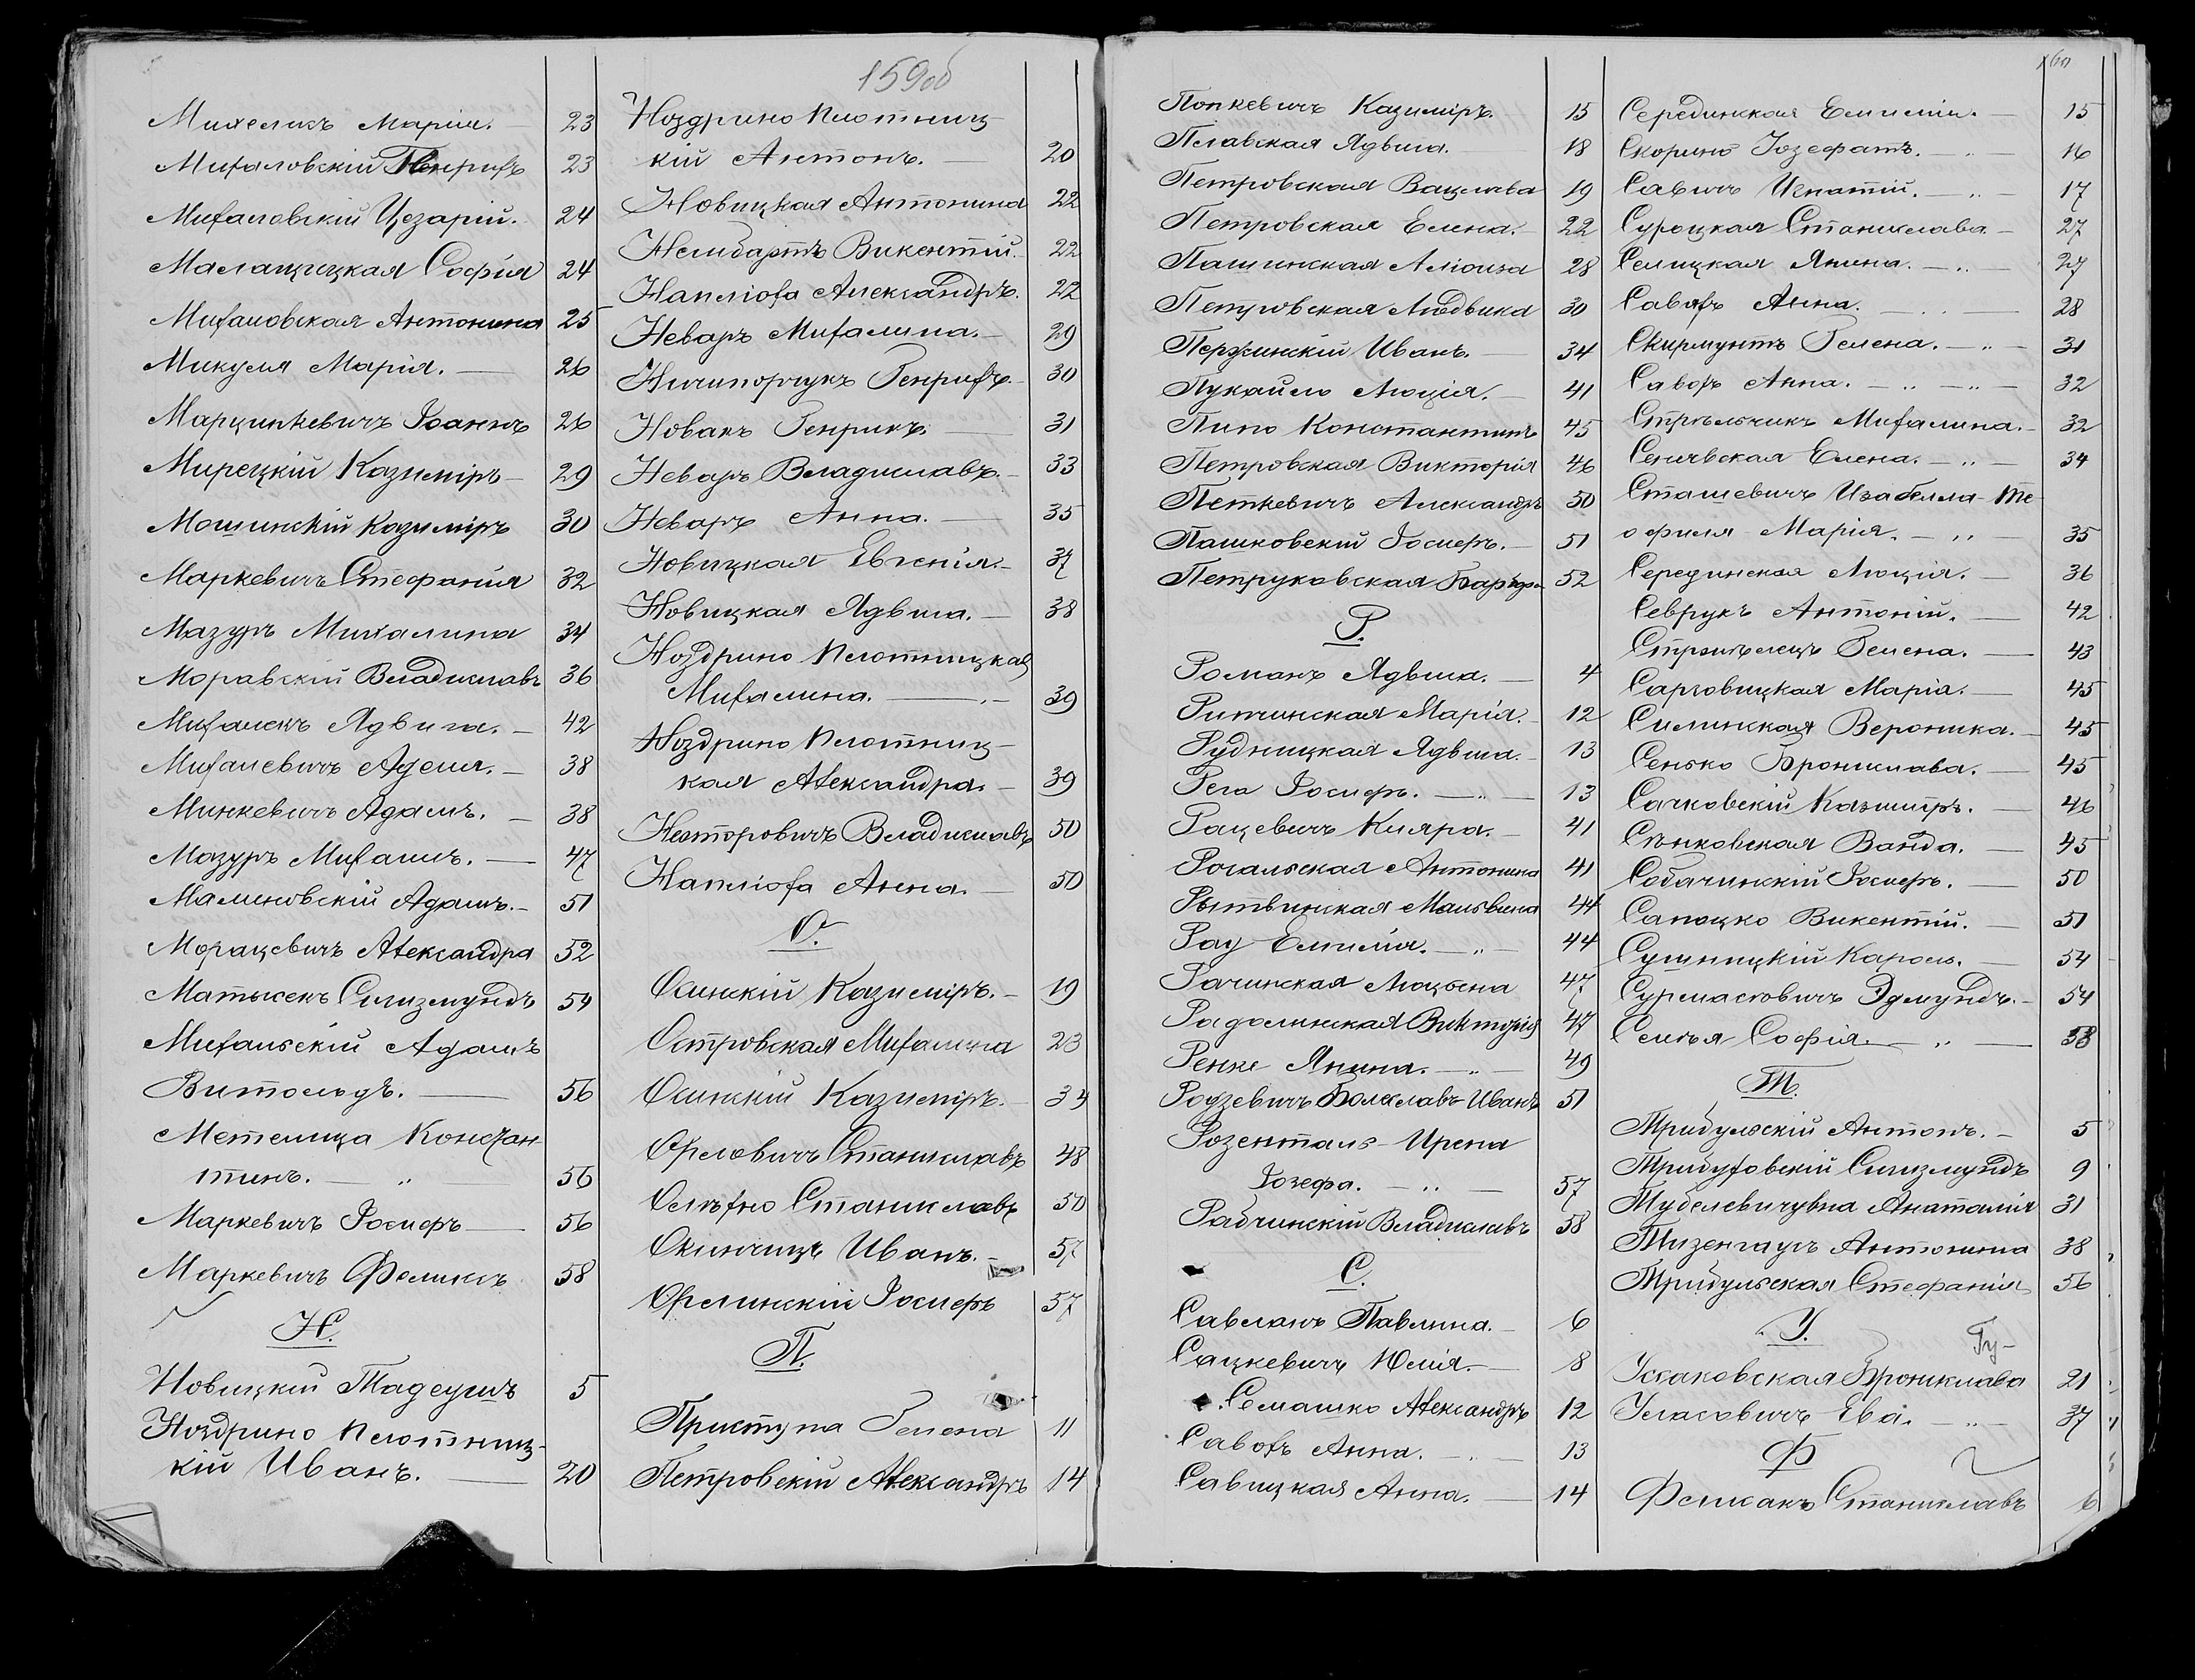 159об
Михеликъ Марія. 23
Михаловскій Генрихъ 23
Михаловскій Цезарій. 24
Малащицкая Софія 24
Михаловская Антонина 25
Микуля Марія. 26
Марцинкевичъ Іоаннъ 26
Мирецкій Казиміръ 29
Мошинскій Казиміръ 30
Маркевичъ Стефанія 32
Мазуръ Михалина 34
Моравскій Владиславъ 36
Михалекъ Ядвига. 42
Михалевичъ Аделя. 38
Минкевичъ Адамъ. 38
Мазуръ Михаилъ. 47
Малиновскій Адамъ. 51
Морацевичъ Александра 52
Матысекъ Сигизмундъ 54
Михальскій Адамъ
Витольдъ. 56
Метелица Констан
тинъ. 56
Маркевичъ Іосифъ 56
Маркевичъ Феликсъ 58
Н.
Новицкій Тадеушъ 5
Ноздрино Плотниц-
кій Иванъ. 20
Ноздрино Плотниц-
кій Антонъ. 20
Новицкая Антонина 22
Нелибартъ Викентій. 22
Наплюха Александръ. 22
Неваръ Михалина. 29
Ничипорчукъ Генрихъ. 30
Новакъ Генрикъ. 31
Неваръ Владиславъ. 33
Неваръ Анна. 35
Новицкая Евгенія. 37
Новицкая Ядвига. 38
Ноздрино Плотницкая
Михалина. 39
Ноздрино Плотниц-
кая Александра. 39
Несторовичъ Владиславъ 50
Наплюха Анна. 50
О.
Осинскій Казиміръ. 19
Островская Михалина 23
Осинскій Казиміръ. 34
Ореловичъ Станиславъ 48
Олѣхно Станиславъ 50
Окинчицъ Иванъ. 57
Орлинскій Іосифъ 57
П.
Приступа Гелена 11
Петровскій Александръ 14
160
Попкевичъ Казиміръ. 15
Плавская Ядвига. 18
Петровская Вацлава 19
Петровская Елена. 22
Пашинская Алоиза 28
Петровская Людвика 30
Пержинскій Иванъ. 34
Пукайло Люція. 41
Пипо Константинъ 45
Петровская Викторія 46
Петкевичъ Александръ 50
Пашковскій Іосифъ. 51
Петруковская Барбара 52
Р.
Романъ Ядвига. 4
Ритчинская Марія. 12
Рудницкая Ядвига. 13
Рега Іосифъ. 13
Рацевичъ Кляра. 41
Рогальская Антонина 41
Рытвинская Мальвина 44
Рау Емилія. 44
Рачинская Люцына 47
Радолинская Викторія 47
Ренке Янина. 49
Родзевичъ Болеславъ-Иванъ 51
Розенталь-Ирена
Іозефа. 57
Рабчинскій Владиславъ 58
С.
Савеланъ Павлина. 6
Сацкевичъ Юлія. 8
Семашко Александръ 12
Савохъ Анна. 13
Савицкая Анна. 14
Серединская Емилія. 15
Скорино Іозефатъ. 16
Савичъ Игнатій. 17
Суроцкая Станислава. 27
Селицкая Янина. 27
Савохъ Анна. 28
Скирмунтъ Гелена. 31
Савохъ Анна. 32
Стрѣльчикъ Михалина. 32
Сенчевская Елена. 34
Сташевичъ Изабелла-Те
офиля Марія. 35
Серединская Люція. 36
Севрукъ Антоній. 42
Стрѣлецъ Гелена. 43
Сарговицкая Марія. 45
Силинская Вероника. 45
Сенько Бронислава. 45
Сачковскій Казиміръ. 46
Сѣнковская Ванда. 45
Собачинскій Іосифъ. 50
Сапоцко Викентій. 51
Сушицкій Кароль. 54
Сурмасовичъ Эдмундъ. 54
Семья Софія. 58
Т.
Трибульскій Антонъ. 5
Трибуховскій Сигизмундъ 9
Тубелевичувна Анаталія 31
Тизенгаузъ Антонина 38
Трибульская Стефанія 56
У.
Гу-
Усаковская Бронислава 21
Усасовичъ Ева. 37
Ф
Фелисакъ Станиславъ 6